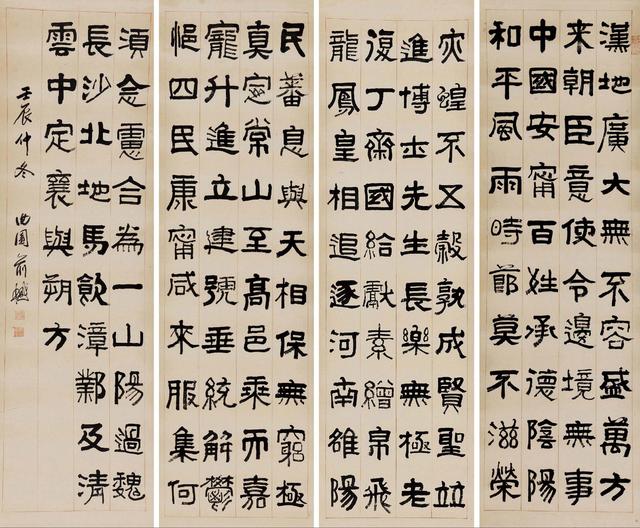 漢地廣大無不容盛萬方
来朝臣意使令邊境無事
中國安甯百姓承德陰陽
和平風雨時節莫不滋榮
灾蝗不五穀孰成賢聖竝
進博士先生長樂無極老
復丁齊國給獻素繒帛飛
龍鳳皇相追逐河南雒陽
民蕃息與天相保無窮極
真定常山至高邑乘而嘉
寵升進立建號垂統解鬱
悒四民康甯咸來服集何
須念慮合為一山陽過魏
長沙北地馬飲漳鄴及清
雲中定襄與朔方
壬辰仲冬 曲園俞樾